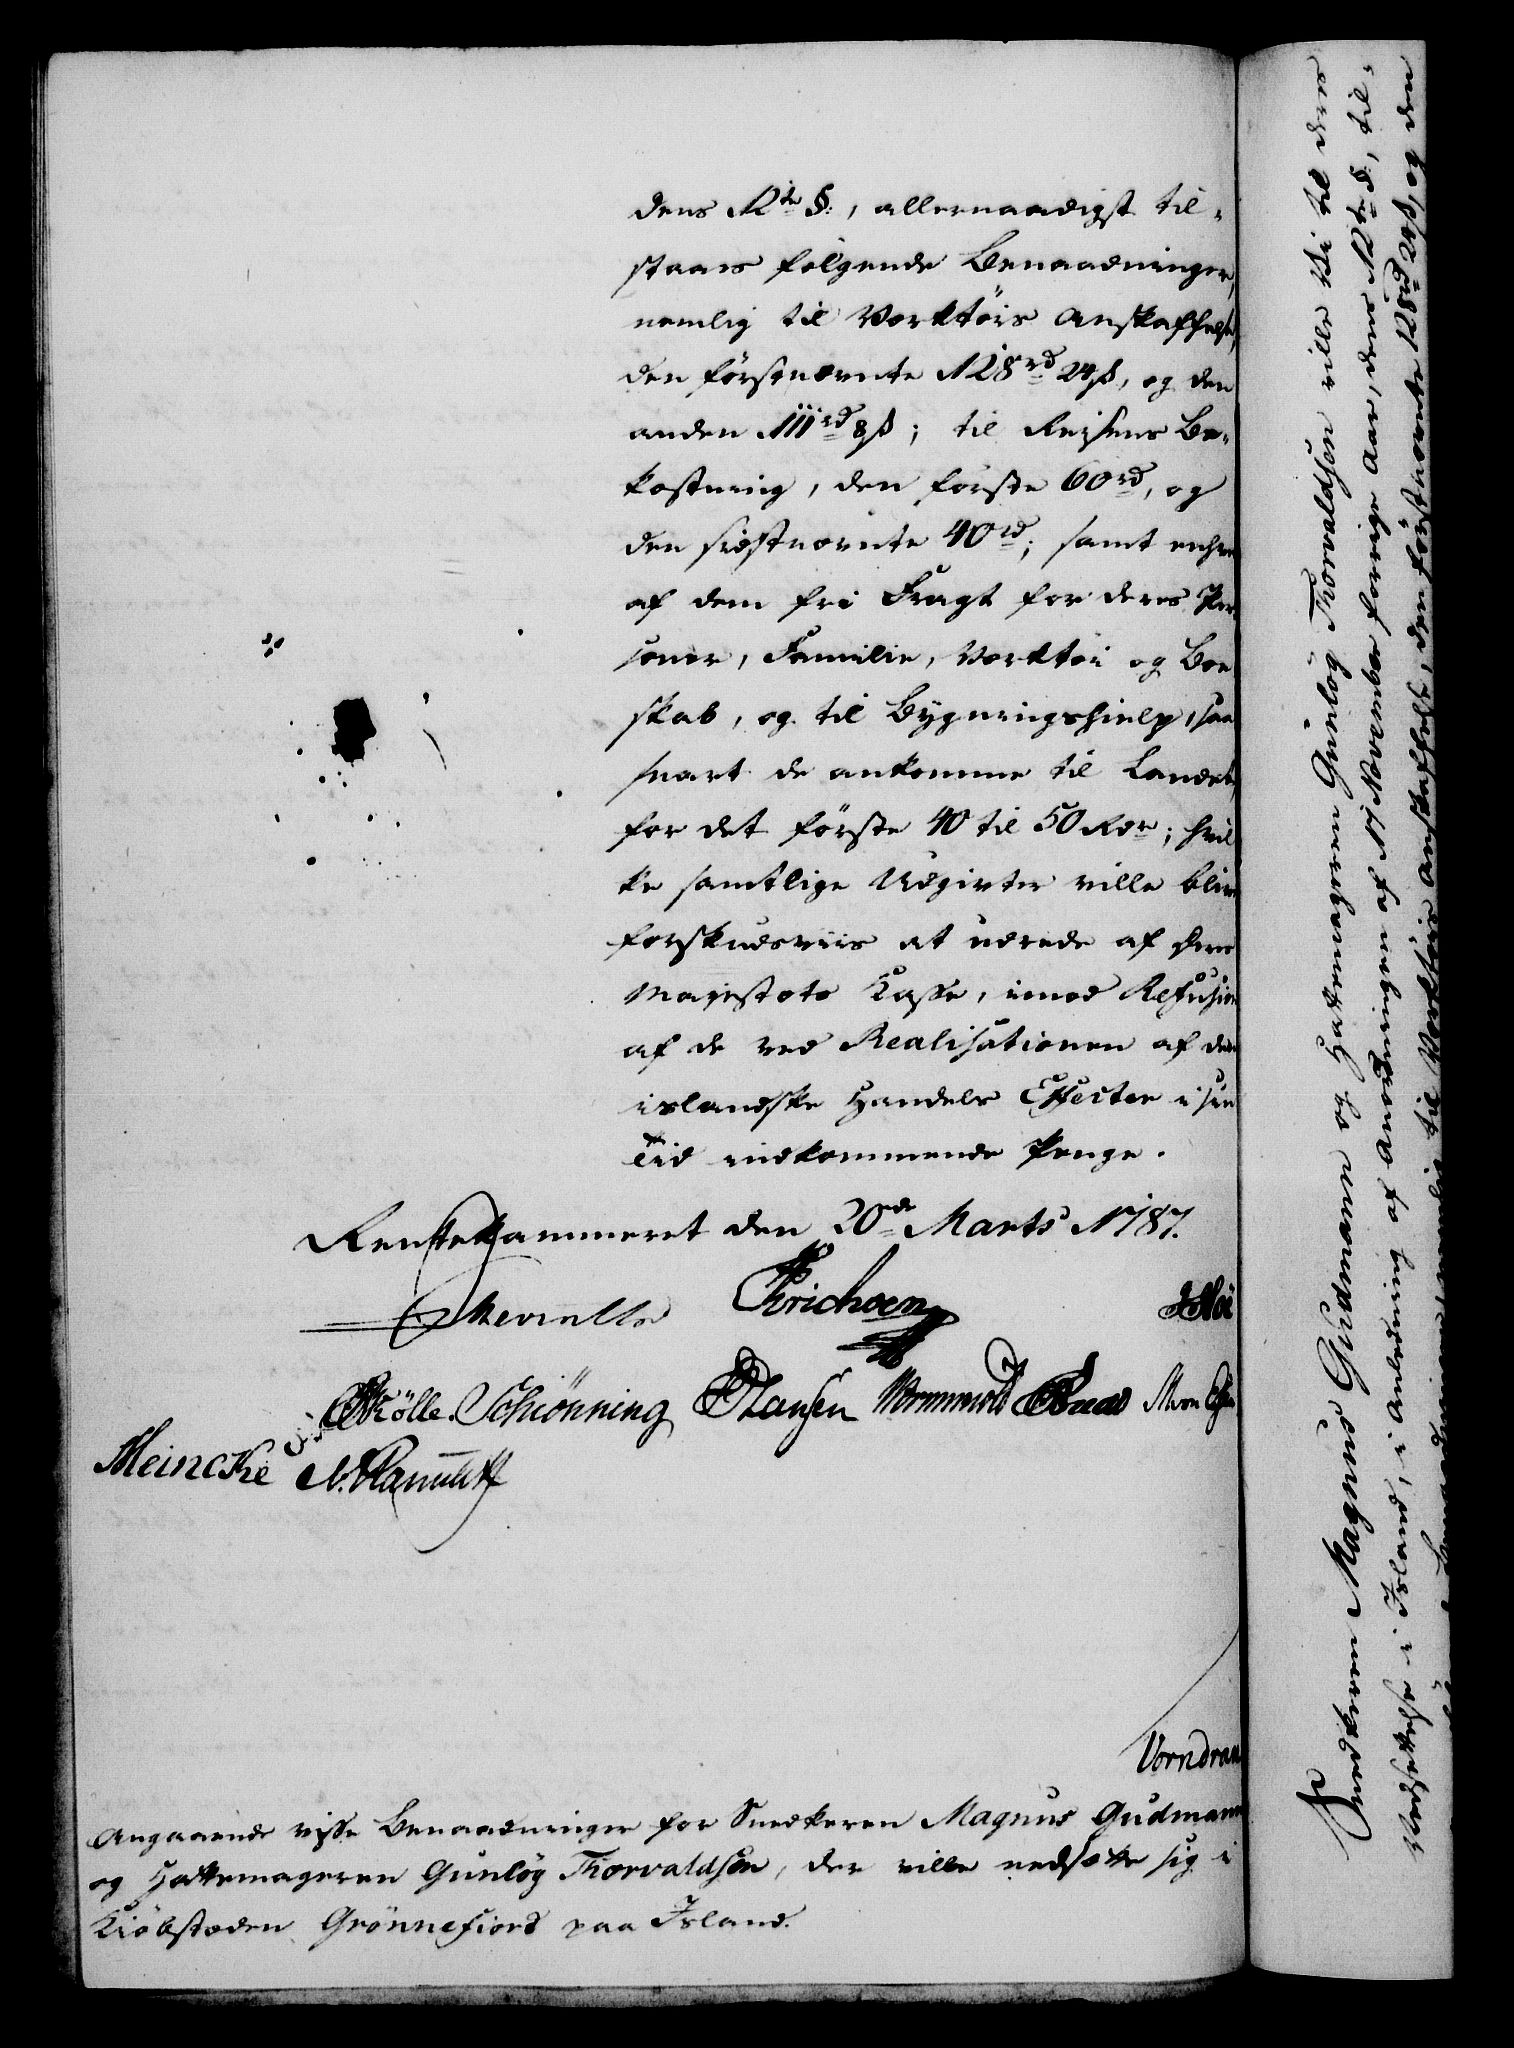 dens 12te §:, allernaadigst til-
staaes følgende Benaadninger,
nemlig til Verktöis Anskaffelse,
den förstnævnte 128rd 24ß, og den
anden 111rd 8ß; til Reisens Be-
kostning, den første 60rd, og
den sidstnævnte 40rd; samt enhver
af dem fri Fragt for deres Per-
soner, Familie, Verktöi og Boe
skab, og til Bygningshielp, saa
snart de ankomme til Landet,
for det förste 40 til 50 Rdr; hvil
ke samtlige Udgivter ville blive
forskudsviis at udrede af Deres
Majestæts Kasse, imod Refusion
af de ved Realisationen af den
islandske Handels Effecter i sin
Tid indkommende Penge.
Rentekammeret den 20de Marts 1787.
Erichsen
Schiönning Hansen
Meincke
Vorndran
Angaaende visse Benaadninger for Snedkeren Magnus Gudmann
og Hattemageren Gunlög Thorvaldsen, der ville nedsætte sig i
Kiöbstæden Grönnefiord paa Island.
Snedkeren Magnus Gudmann og Hattemageren Gunlög Thorvaldsen ville Vi til deres
Nedsettelse i Island, i Anledning af Anordningen af 17 November forrige Aar, dens 12te §, til-
nemlig til Verktöis Anskaffelse, den förstnævnte 128rd 24ß, og den